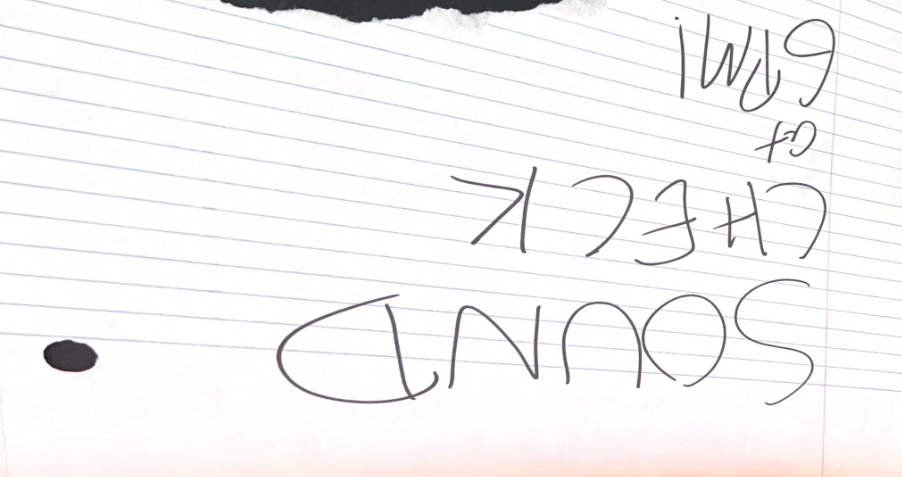 SOUND
CHECK
at
6PM!